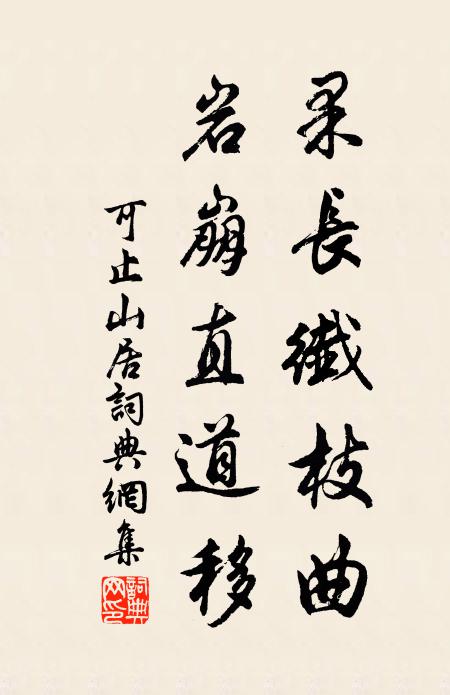 果長纖枝曲
岩崩直道移
可止山居詞典網集
詞典网印